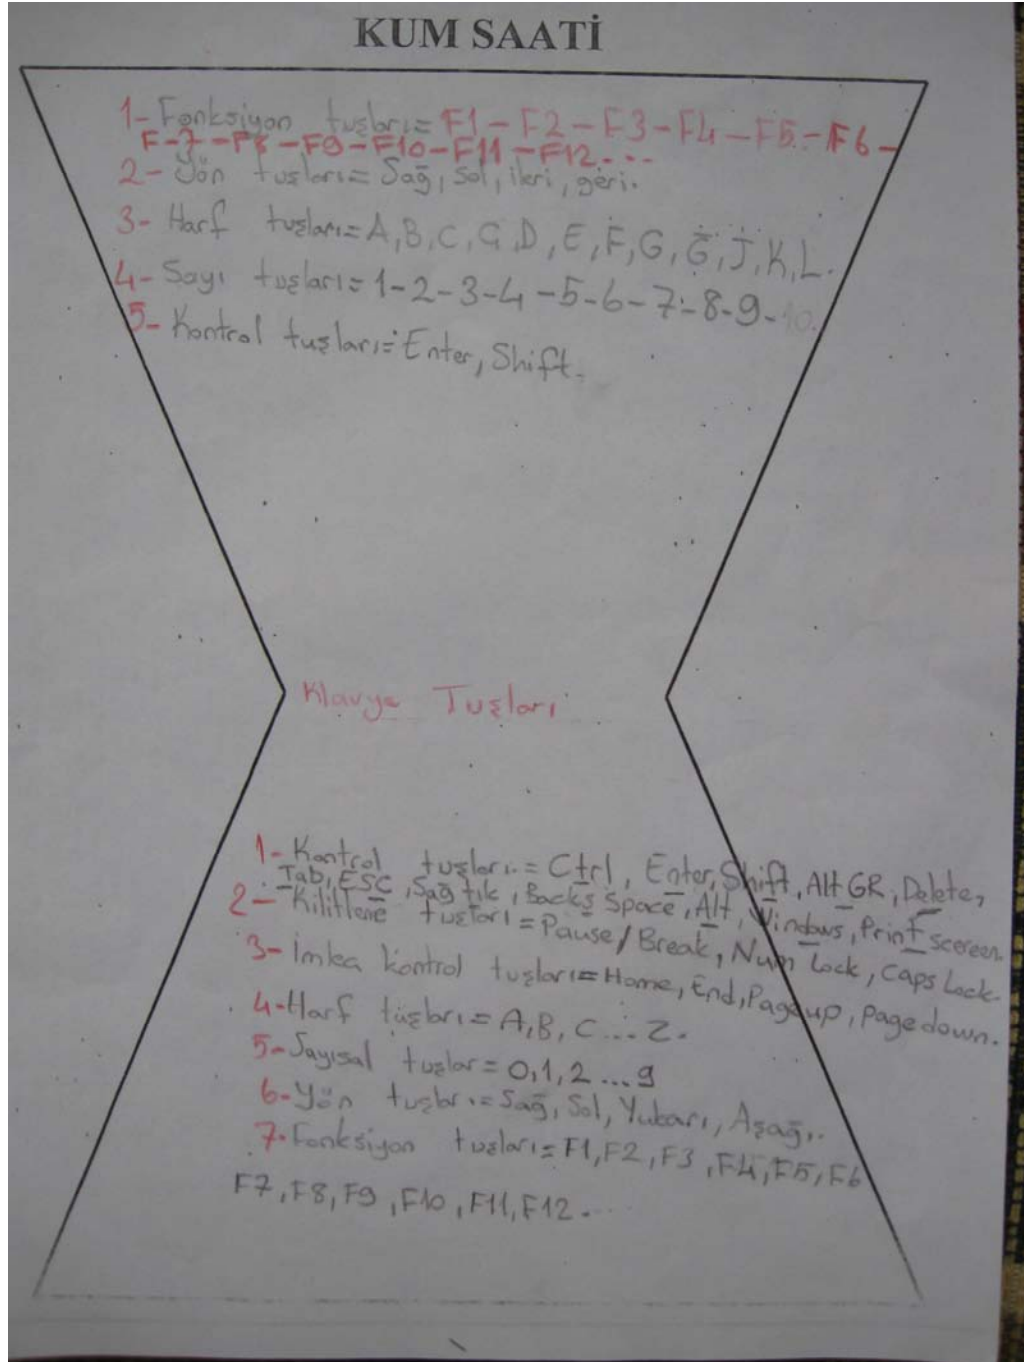 KUM SAATİ
1- Fonksiyon tuşları= F1 - F2 - F3 - F4 - F5 - F6 -
F-7 - F8 - F9 - F10 - F11 - F12...
2- Yön tuşları= Sağ, Sol, ileri, geri.
3- Harf tuşları= A, B, C, Ç, D, E, F, G, Ğ, J, K, L.
4- Sayı tuşları= 1-2-3-4-5-6-7-8-9-10.
5- Kontrol tuşları= Enter, Shift.
Klavye Tuşları
1- Kontrol tuşları= Ctrl, Enter, Shift, Alt GR, Delete,
Tab, ESC, Sağ tık, Backs Space, Alt, Windows, Print scereen.
2- Kilitleme tuşları= Pause/Break, Num Lock, Caps Lock.
3- İmlea kontrol tuşları= Home, End, Page up, page down.
4- Harf tüşları= A, B, C ... Z.
5- Sayısal tuşlar= 0,1,2 ...9
6- Yön tuşları= Sağ, Sol, Yukarı, Aşağı.
7- Fonksiyon tuşları= F1, F2, F3, F4, F5, F6
F7, F8, F9, F10, F11, F12...